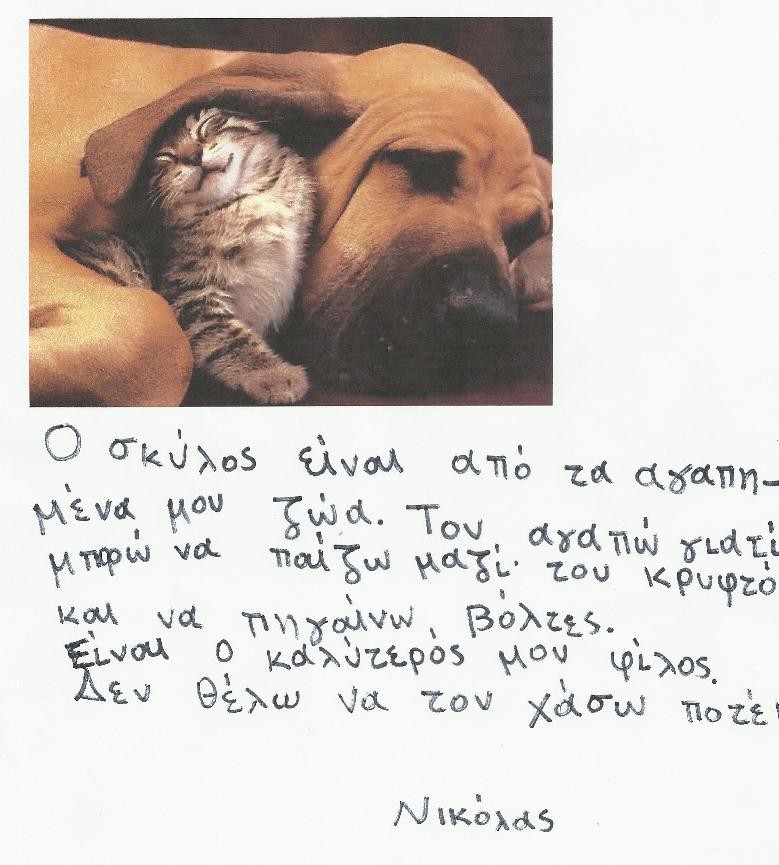 Ο σκύλος είναι από τα αγαπη-
μένα μου ζώα. Τον αγαπώ γιατί
μπορώ να παίζω μαζί του κρυφτό
και να πηγαίνω βόλτες.
Είναι ο καλύτερός μου φίλος.
Δεν θέλω να τον χάσω ποτέ!
Νικόλας